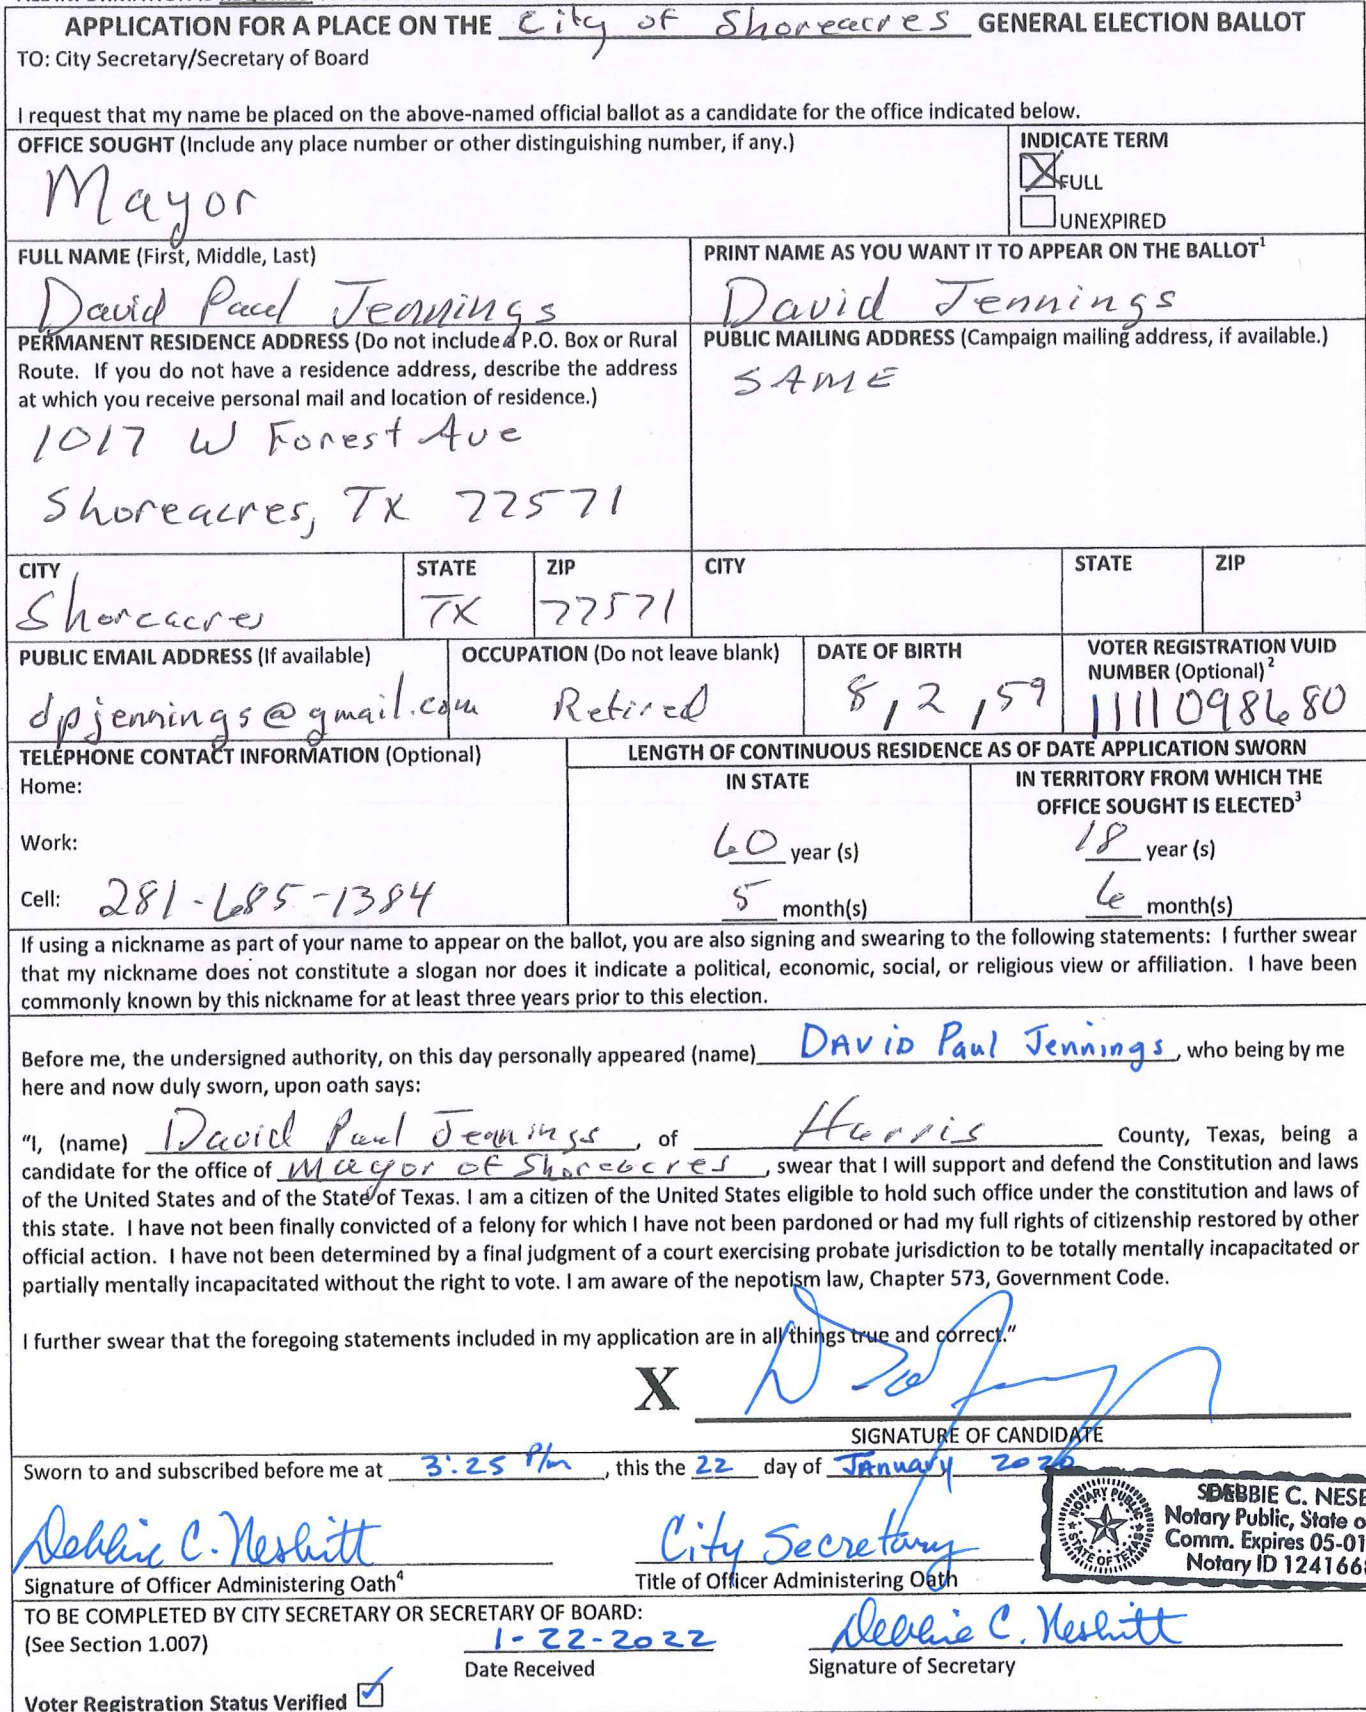 APPLICATION FOR A PLACE ON THE City of Shoreacres GENERAL ELECTION BALLOT
TO: City Secretary/Secretary of Board
I request that my name be placed on the above-named official ballot as a candidate for the office indicated below.
OFFICE SOUGHT (Include any place number or other distinguishing number, if any.)
Mayor
INDICATE TERM
FULL
UNEXPIRED
FULL NAME (First, Middle, Last)
David Paul Jennings
PRINT NAME AS YOU WANT IT TO APPEAR ON THE BALLOT1
David Jennings
PERMANENT RESIDENCE ADDRESS (Do not include a P.O. Box or Rural
Route. If you do not have a residence address, describe the address
at which you receive personal mail and location of residence.)
1017 W Forest Ave
Shoreacres, TX 77571
PUBLIC MAILING ADDRESS (Campaign mailing address, if available.)
SAME
CITY
Shoreacres
STATE
TX
ZIP
77571
CITY
STATE
ZIP
PUBLIC EMAIL ADDRESS (If available)
dpjennings@gmail.com
OCCUPATION (Do not leave blank)
Retired
DATE OF BIRTH
8 / 2 / 59
VOTER REGISTRATION VUID
NUMBER (Optional)2
1111098680
TELEPHONE CONTACT INFORMATION (Optional)
Home:
Work:
Cell: 281-685-1384
LENGTH OF CONTINUOUS RESIDENCE AS OF DATE APPLICATION SWORN
IN STATE
60 year (s)
5 month(s)
IN TERRITORY FROM WHICH THE
OFFICE SOUGHT IS ELECTED3
18 year (s)
6 month(s)
If using a nickname as part of your name to appear on the ballot, you are also signing and swearing to the following statements: I further swear
that my nickname does not constitute a slogan nor does it indicate a political, economic, social, or religious view or affiliation. I have been
commonly known by this nickname for at least three years prior to this election.
Before me, the undersigned authority, on this day personally appeared (name) DAViD Paul Jennings, who being by me
here and now duly sworn, upon oath says:
"I, (name) David Paul Jennings, of Harris County, Texas, being a
candidate for the office of Mayor of Shoreacres, swear that I will support and defend the Constitution and laws
of the United States and of the State of Texas. I am a citizen of the United States eligible to hold such office under the constitution and laws of
this state. I have not been finally convicted of a felony for which I have not been pardoned or had my full rights of citizenship restored by other
official action. I have not been determined by a final judgment of a court exercising probate jurisdiction to be totally mentally incapacitated or
partially mentally incapacitated without the right to vote. I am aware of the nepotism law, Chapter 573, Government Code.
I further swear that the foregoing statements included in my application are in all things true and correct."
X
SIGNATURE OF CANDIDATE
Sworn to and subscribed before me at 3:25 P/m, this the 22 day of JAnuary
Debbie C. Nesbitt
Signature of Officer Administering Oath4
City Secretary
Title of Officer Administering Oath
NOTARY PUBLIC
STATE OF TEXAS
DEBBIE C. NESB
Notary Public, State o
Comm. Expires 05-01
Notary ID 124166
TO BE COMPLETED BY CITY SECRETARY OR SECRETARY OF BOARD:
(See Section 1.007)
1-22-2022
Date Received
Debbie C. Nesbitt
Signature of Secretary
Voter Registration Status Verified